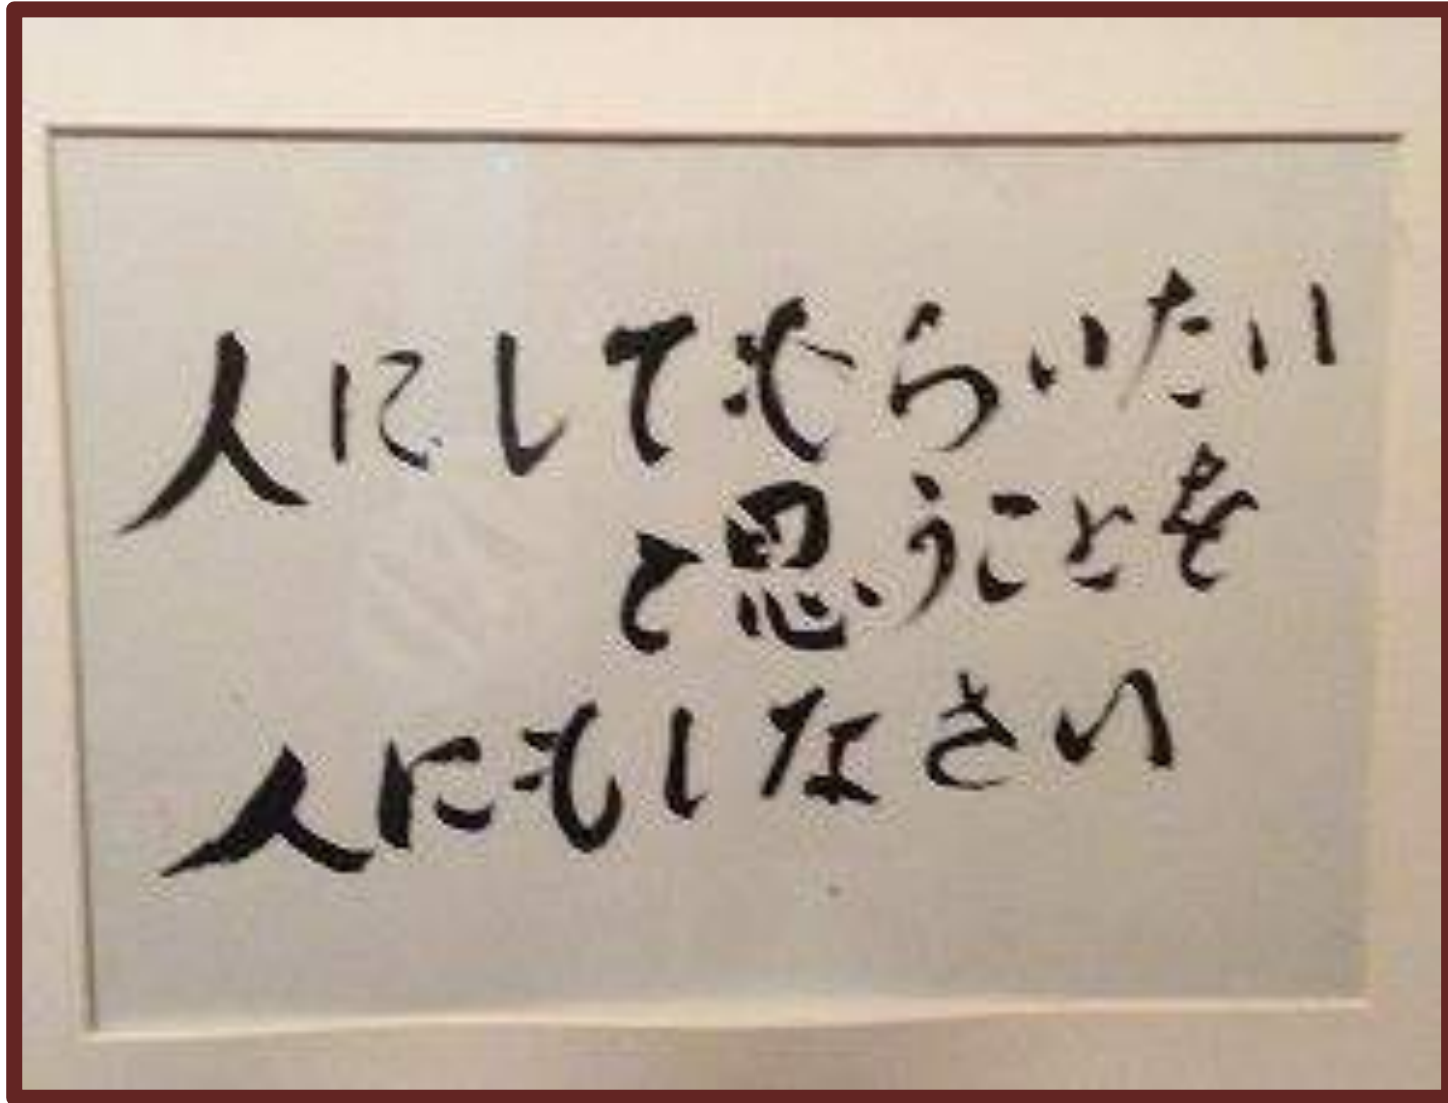 人にしてもらいたい
と思うことを
人にもしなさい